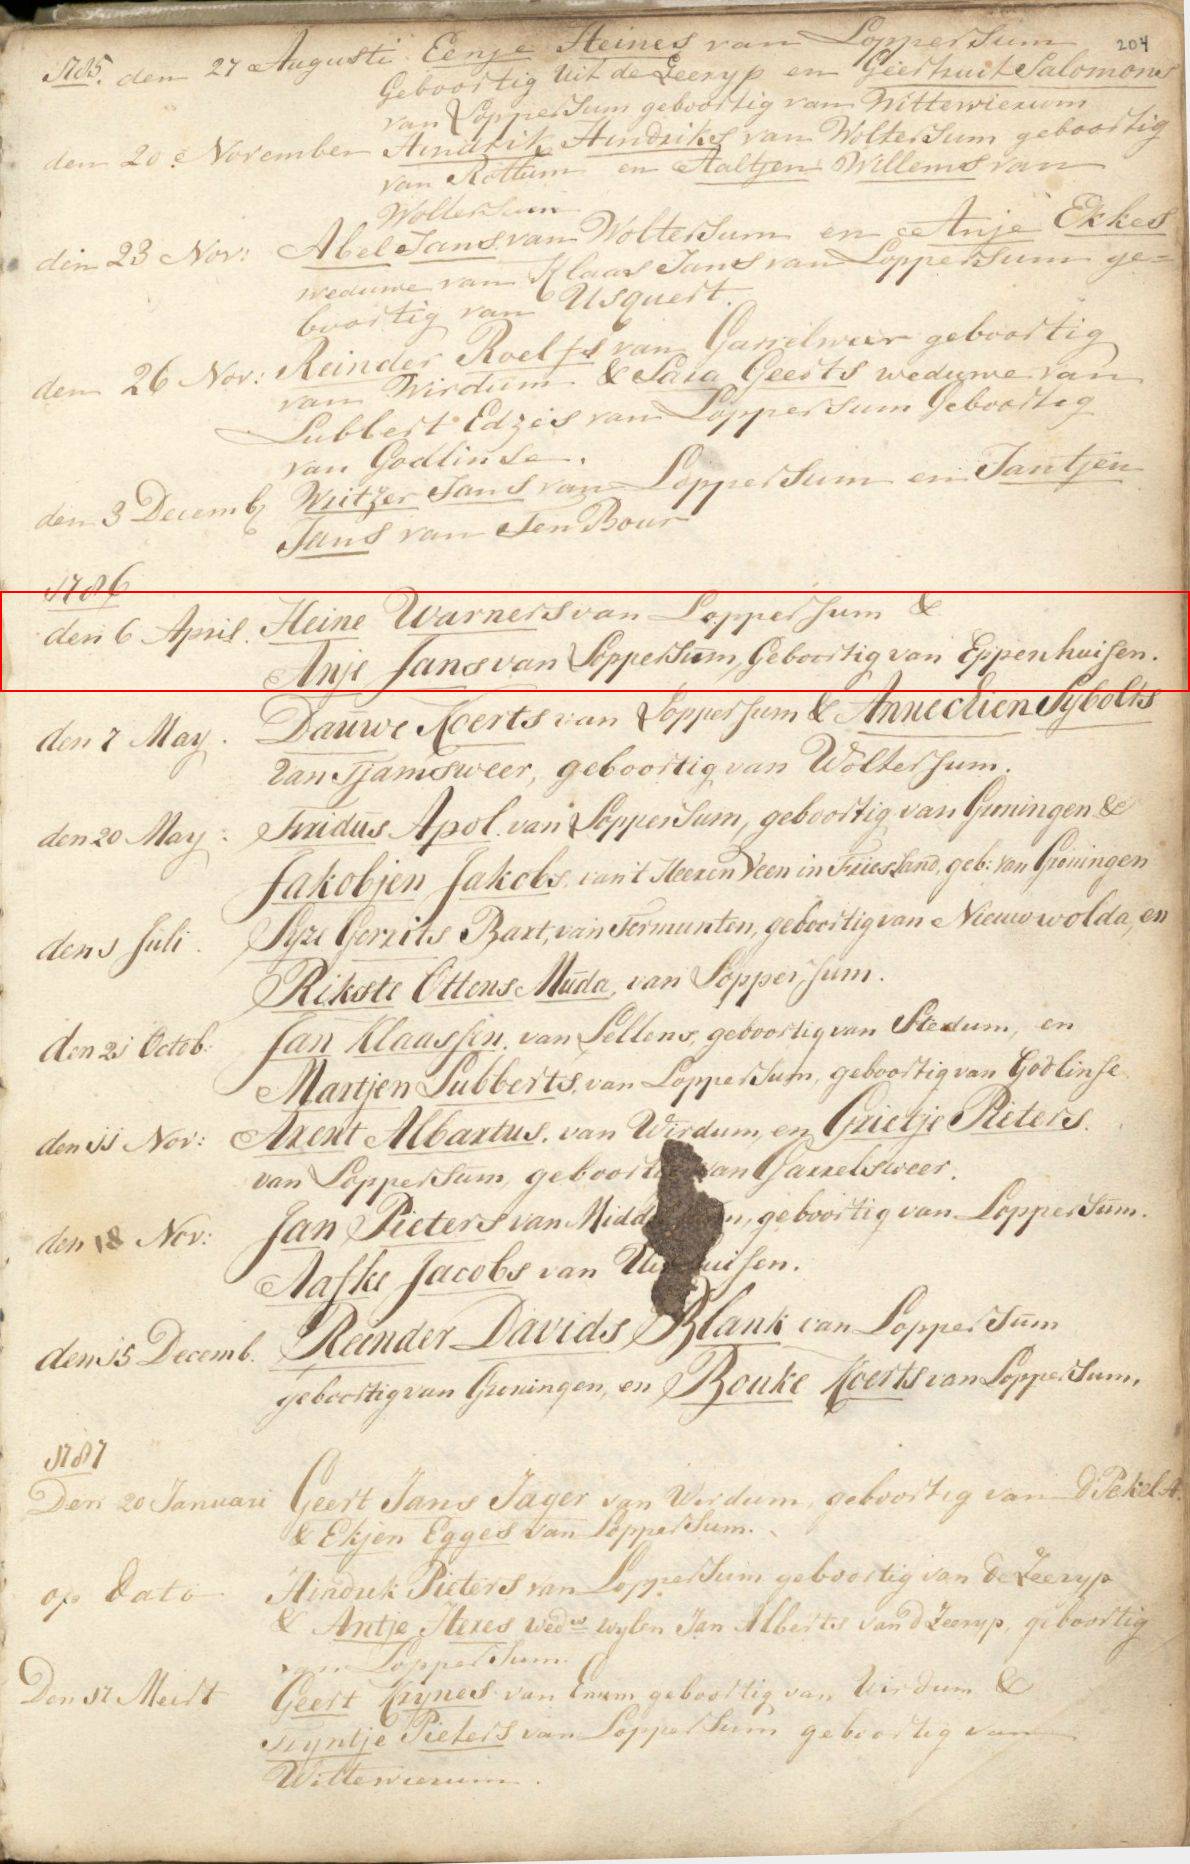 204
1785. den 27 Augusti Eenje Heines van Loppersum
Geboortig Uit de Zeeryp en Geertruit Salomons
van Loppersum geboortig van Wittewierum
den 20e November Hindrik Hindriks van Woltersum geboortig
van Rottum en Aaltjen Willems van
Woltersum
den 23 Nov: Abel Jans van Woltersum en Anje Ekkes
weduwe van Klaas Jans van Loppersum ge=
boortig van Usquert.
den 26 Nov: Reinder Roelfs van Garrelweer geboortig
van Wirdum & Sara Geerts weduwe van
Lubbert Edzes van Loppersum Geboortig
van Godlinse.
den 3 Decemb Jans van Loppersum en Jantjen
Jans van Ten Boer
1786
den 6 April. Heine Warners van Loppersum &
Anje Jans van Loppersum, Geboortig van Eppenhuisen.
den 7 May. Dauwe Koerts van Loppersum & Annechien Sybolts
van Tjamsweer, geboortig van Woltersum.
den 20 May: Apol. van Loppersum, geboortig van Groningen &
Jakobjen Jakobs, van 't Heeren Veen in Friesland, geb: van Groningen
den 1 Juli. Gerrits Bart, van Termunten, geboortig van Nieuwwolda, en
Rikste Ottens Muda, van Loppersum.
den 21 Octob: Jan Klaassen, van Lellens, geboortig van Stedum, en
Martjen Lubberts, van Loppersum, geboortig van Godlinse
den 11 Nov: Arent Albartus, van Wirdum, en Grietje Pieters.
van Loppersum, geboortig van Garrelsweer.
den 18 Nov: Jan Pieters van geboortig van Loppersum.
Aafke Jacobs van
den 15 Decemb. Reinder Davids Blank van Loppersum
geboortig van Groningen, en Bouke Koerts van Loppersum.
1787
Den 20 Januari Geert Jans Jager van Wirdum, geboortig van d'Pekel A.
& Ekjen Egges van Loppersum.
op Dato Hindrik Pieters van Loppersum geboortig van de Zeeryp
& Antje Hexes wedw wylen Jan Alberts van d Zeeryp, geboortig
van Loppersum.
Den 17 Meert Geert Krynes van Enum geboortig van Wirdum &
Tryntje Pieters van Loppersum geboortig van
Wittewierum.